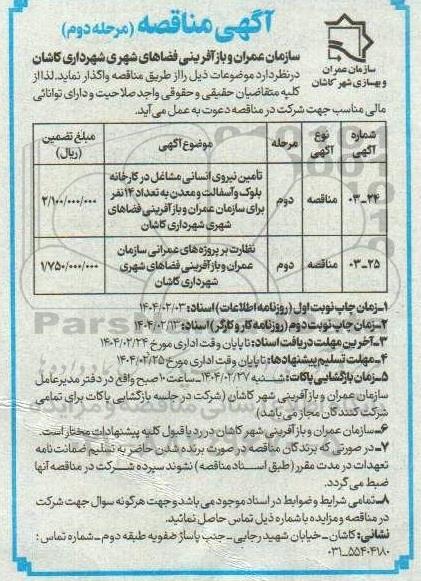 آگهی مناقصه (مرحله دوم)
سازمان عمران
و بهسازی شهر کاشان
سازمان عمران و بازآفرینی فضاهای شهری شهرداری کاشان
در نظر دارد موضوعات ذیل را از طریق مناقصه واگذار نماید. لذا از
کلیه متقاضیان حقیقی و حقوقی واجد صلاحیت و دارای توانائی
مالی مناسب جهت شرکت در مناقصه دعوت به عمل می‌آید.
شماره آگهی | نوع آگهی | مرحله | موضوع آگهی | مبلغ تضمین (ریال)
۰۳-۲۴ | مناقصه | دوم | تأمین نیروی انسانی مشاغل در کارخانه بلوک و آسفالت و معدن به تعداد ۱۴ نفر برای سازمان عمران و بازآفرینی فضاهای شهری شهرداری کاشان | ۲/۱۰۰/۰۰۰/۰۰۰
۰۳-۲۵ | مناقصه | دوم | نظارت بر پروژه‌های عمرانی سازمان عمران و بازآفرینی فضاهای شهری شهرداری کاشان | ۱/۷۵۰/۰۰۰/۰۰۰
۱ـ زمان چاپ نوبت اول (روزنامه اطلاعات) اسناد: ۱۴۰۴/۰۲/۰۳
۲ـ زمان چاپ نوبت دوم (روزنامه کار و کارگر) اسناد: ۱۴۰۴/۰۲/۱۳
۳ـ آخرین مهلت دریافت اسناد: تا پایان وقت اداری مورخ ۱۴۰۴/۰۲/۲۴
۴ـ مهلت تسلیم پیشنهادها: تا پایان وقت اداری مورخ ۱۴۰۴/۰۲/۲۵
۵ـ زمان بازگشایی پاکات: شنبه ۱۴۰۴/۰۲/۲۷ ـ ساعت ۱۰ صبح واقع در دفتر مدیرعامل
سازمان عمران و بازآفرینی شهر کاشان (شرکت در جلسه بازگشایی پاکات برای تمامی
شرکت کنندگان مجاز می باشد)
۶ـ سازمان عمران و بازآفرینی شهر کاشان در رد یا قبول کلیه پیشنهادات مختار است.
۷ـ در صورتی که برندگان مناقصه در صورت برنده شدن حاضر به تسلیم ضمانت نامه
تعهدات در مدت مقرر (طبق اسناد مناقصه) نشوند سپرده شرکت در مناقصه آنها
ضبط می گردد.
۸ـ تمامی شرایط و ضوابط در اسناد موجود می باشد و جهت هرگونه سوال جهت شرکت
در مناقصه و مزایده با شماره ذیل تماس حاصل نمائید.
نشانی: کاشان ـ خیابان شهید رجایی ـ جنب پاساژ صفویه طبقه دوم ـ شماره تماس :
۰۳۱-۵۵۴۰۴۱۸۰